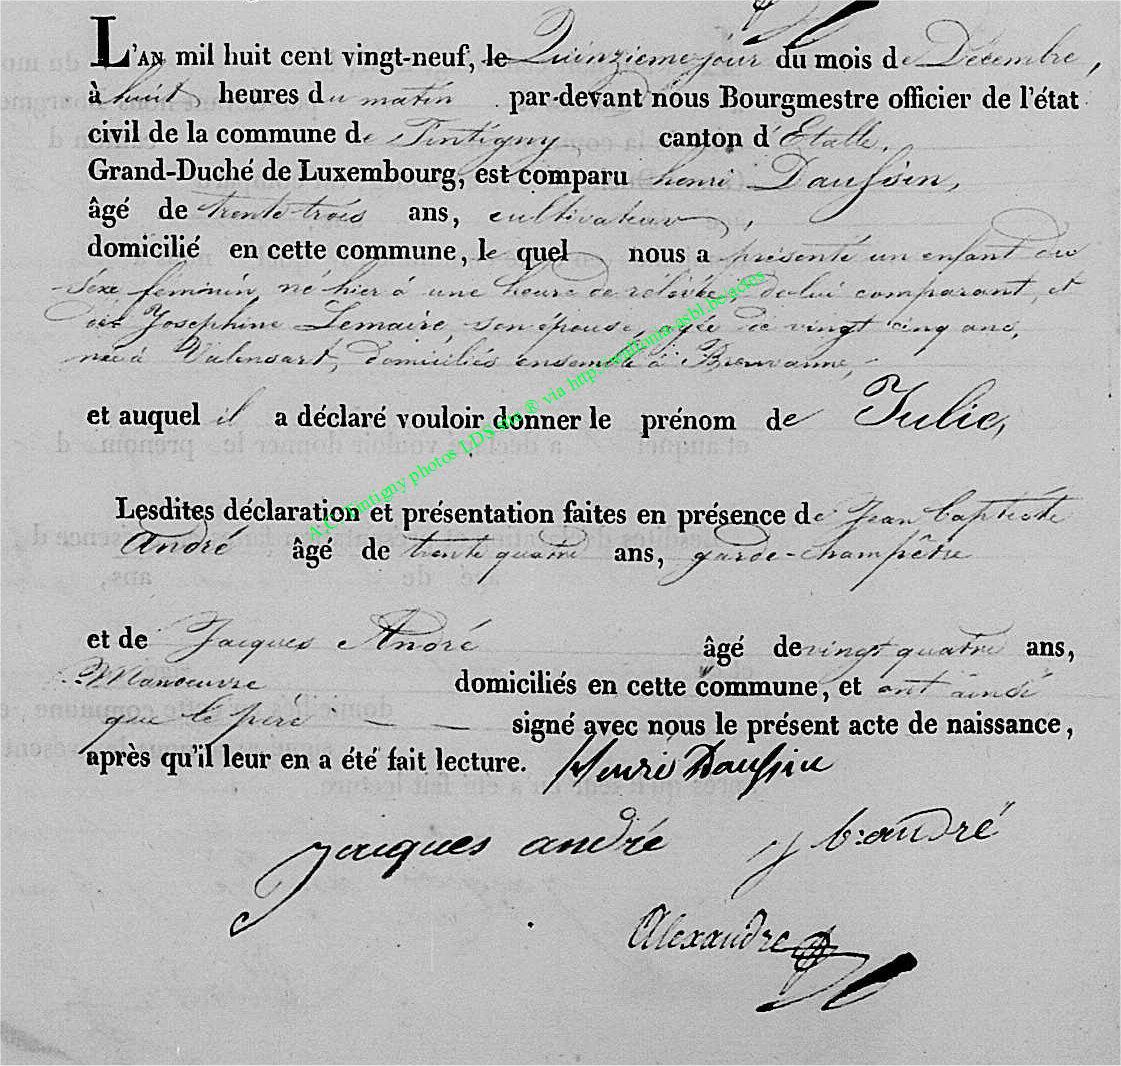 L'AN mil huit cent vingt-neuf, le Quinzieme jour du mois de Décembre,
à huit heures du matin par-devant nous Bourgmestre officier de l'état
civil de la commune de Tintigny canton d'Etalle,
Grand-Duché de Luxembourg, est comparu henri Daussin,
âgé de trente trois ans, cultivateur,
domicilié en cette commune, le quel nous a présenté un enfant du
Sexe feminin, né hier à une heure de relevée, de lui comparant, et
de Josephine Lemaire son épouse, agée de vingt cinq ans,
née à Valensart, domiciliés ensemble à Breuvanne,
et auquel il a déclaré vouloir donner le prénom de Julie,
A.C. Tintigny photos LDS via http://wallonia-asbl.be/actes
Lesdites déclaration et présentation faites en présence de Jean baptiste
André âgé de trente quatre ans, garde-champêtre
et de Jacques André âgé de vingt quatre ans,
Manoeuvre domiciliés en cette commune, et ont ainsi
que le père signé avec nous le présent acte de naissance,
après qu'il leur en a été fait lecture. Henri Daussin
jacques andré j b: andré
Alexandre